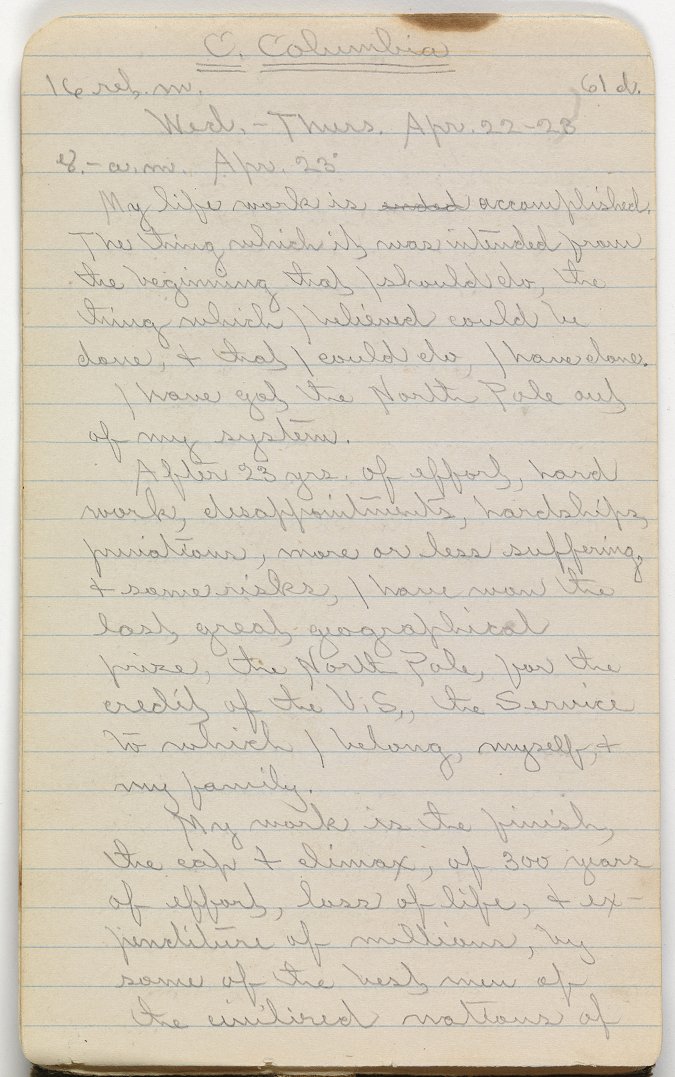 C. Columbia
16 reg. m. 61 d.
Wed. - Thurs. Apr. 22-23
8. - a.m. Apr. 23
My life work is ended accomplished.
The thing which it was intended from
the beginning that I should do, the
thing which I believed could be
done, & that I could do, I have done.
I have got the North Pole out
of my system.
After 23 yrs. of effort, hard
work, disappointments, hardships,
privations, more or less suffering,
& some risks, I have won the
last great geographical
prize, the North Pole, for the
credit of the U.S., the Service
to which I belong, myself, &
my family.
My work is the finish,
the cap & climax, of 300 years
of effort, loss of life, & ex-
penditure of millions, by
some of the best men of
the civilized nations of